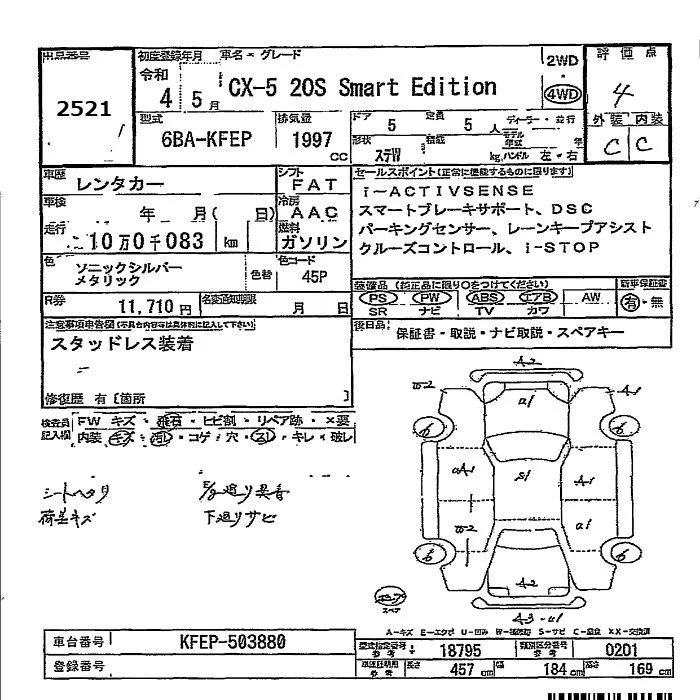 出品番号 初度登録年月 車名・グレード 評価点
2521
令和 4 年 5 月
CX-5 20S Smart Edition
2WD
・
4WD
4
外装 内装
C C
型式 排気量 ドア 定員
6BA-KFEP 1997 cc
5 5 人
形状 ステW
ディーラー・並行
モデル年式 年
kg ハンドル 左・右
車歴 レンタカー
シフト FAT
車検 年 月( 日)
冷房 AAC
走行 10万0千083 km
燃料 ガソリン
色 ソニックシルバー
メタリック
色替
色コード 45P
R券 11,710円
名変通知期限 月 日
セールスポイント(正常に機能するものに限ります)
i-ACTIVSENSE
スマートブレーキサポート、DSC
パーキングセンサー、レーンキープアシスト
クルーズコントロール、i-STOP
装備品 (純正品に限り○をつけてください) 新車保証書
PS PW ABS エアB AW 有・無
SR ナビ TV カワ
後日品: 保証書・取説・ナビ取説・スペアキー
注意事項申告欄(不具合内容等は具体的に記入して下さい)
スタッドレス装着
修復歴 有〔箇所 〕
検査員 FW キズ・飛石・ヒビ割・リペア跡・×要
記入欄 内装 キズ・汚レ・コゲ・穴・スレ・キレ・破レ
シートヘタリ
荷室キズ
下廻りサビ
A-2
W-2
A-1
a1
6
6
aA1
S1
A-1
W-2
a1
6
6
A-2
スペア
A-3 -a1
A-キズ E-エクボ U-凹み W-補修跡 S-サビ C-腐食 XX-交換済
車台番号 KFEP-503880
登録番号
型式指定番号 参考 18795
類別区分番号 参考 0201
車検証明用 参考 長さ 457 cm 幅 184 cm 高さ 169 cm